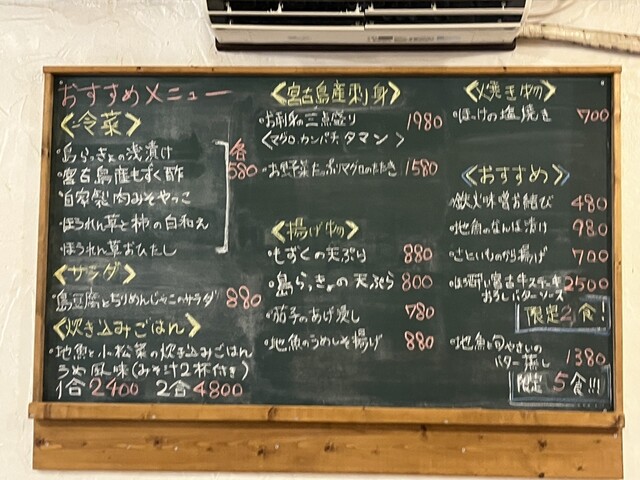 おすすめメニュー
<冷菜>
・島らっきょの浅漬け
・宮古島産もずく酢
・自家製肉みそやっこ
・ほうれん草と柿の白和え
・ほうれん草おひたし
各580
<サラダ>
・島豆腐とちりめんじゃこのサラダ 880
<炊き込みごはん>
・地魚と小松菜の炊き込みごはん
うめ風味(みそ汁2杯付き)
1合2400 2合4800
<宮古島産刺身>
・お刺身の三点盛り 1980
<マグロ、カンパチ、タマン>
・お野菜たっぷりマグロのたたき 1580
<揚げ物>
・もずくの天ぷら 880
・島らっきょの天ぷら 800
・茄子のあげ浸し 780
・地魚のうめしそ揚げ 880
<焼き物>
・ほっけの塩焼き 700
<おすすめ>
味噌お結び 480
・地魚のなんばん漬け 980
・さといものから揚げ 700
宮古牛ステーキ 2500
おろしバターソース
限定2食!
・地魚と旬やさいの 1380
バター蒸し
限定5食!!!